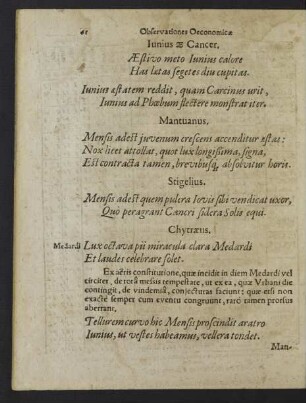 61 Observationes Oeconomicæ
Iunius ♋ Cancer.
Æstivo meto Iunius calore
Has latas segetes diu cupitas.
Iunius æstatem reddit, quam Carcinus urit,
Iunius ad Phœbum flectere monstrat iter.
Mantuanus.
Mensis adest juvenum crescens accenditur æstas:
Nox licet attollat, quot lux longissima, signa,
Est contracta tamen, brevibusq́ absolvitur horis.
Stigelius.
Mensis adest quem pulcra Iovis sibi vendicat uxor,
Quo peragrant Cancri sidera Solis equi.
Chytræus.
Medardi Lux octava pii miracula clara Medardi
Et laudes celebrare solet.
Ex aëris constitutione, quæ incidit in diem Medardi vel
circiter, de tota mensis tempestate, ut ex ea, quæ Urbani die
contingit, de vindemia, conjecturas faciunt; quæ etsi non
exactè semper cum eventu congruunt, rarò tamen prorsus
aberrant.
Tellurem curvo hic Mensis proscindit aratro
Iunius, ut vestes habeamus, vellera tondet.
Man-